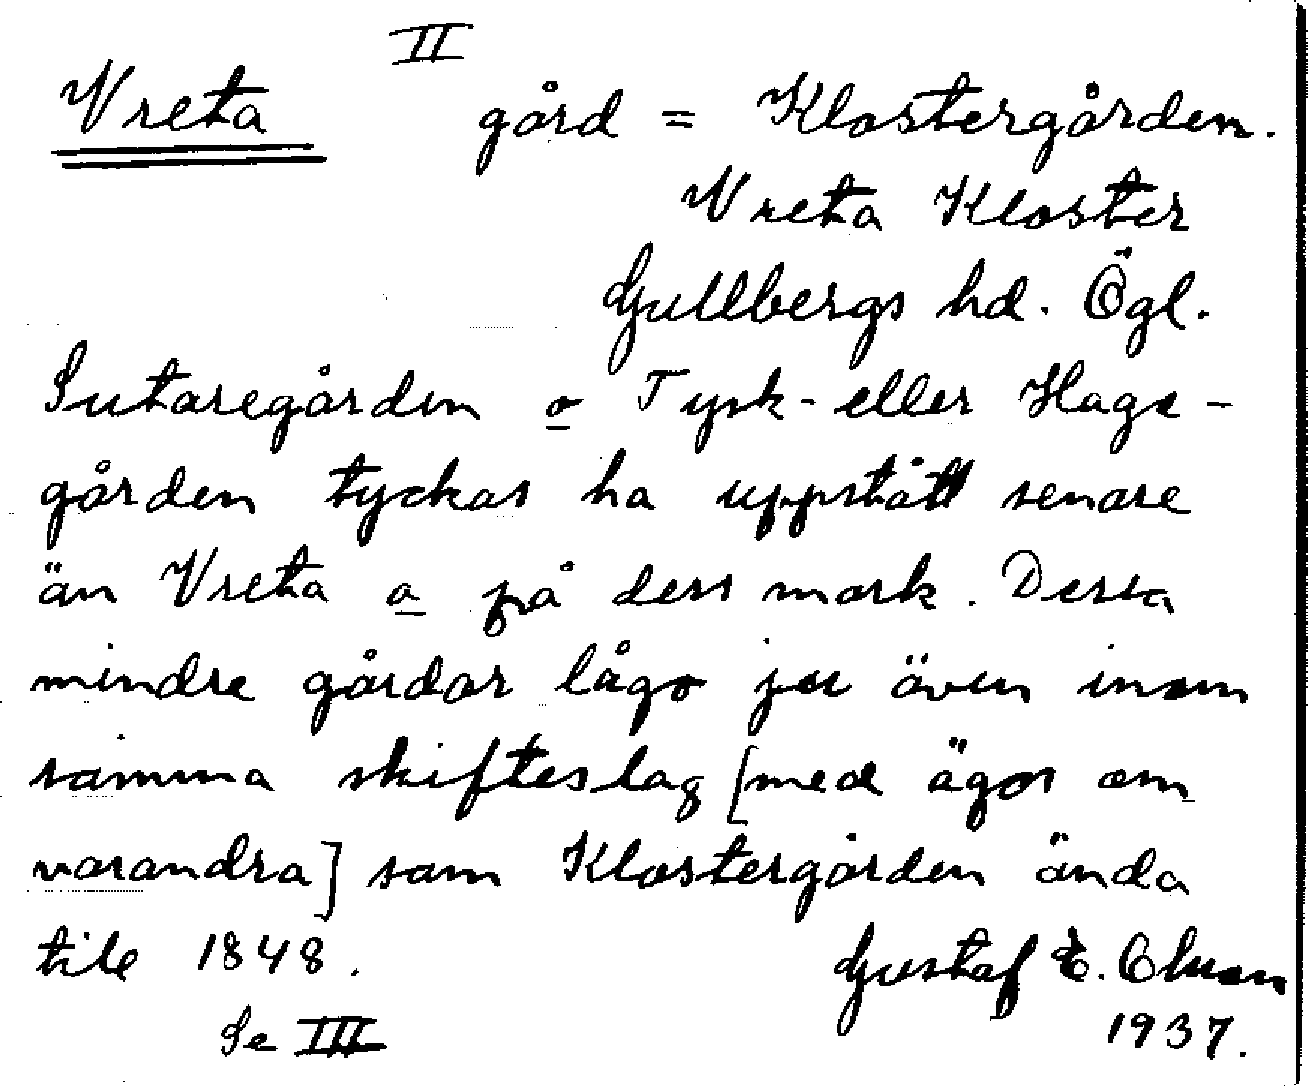 II
Vreta gård = Klostergården.
Vreta Kloster
Gullbergs hd. Ögl.
Sutaregården o Tysk- eller Hage-
gården tyckas ha uppstått senare
än Vreta a på dess mark. Dessa
mindre gårdar lågo ju även inom
samma skifteslag [med ägor om
varandra] som Klostergården ända
till 1848.
Gustaf E. Olsson
Se III
1937.